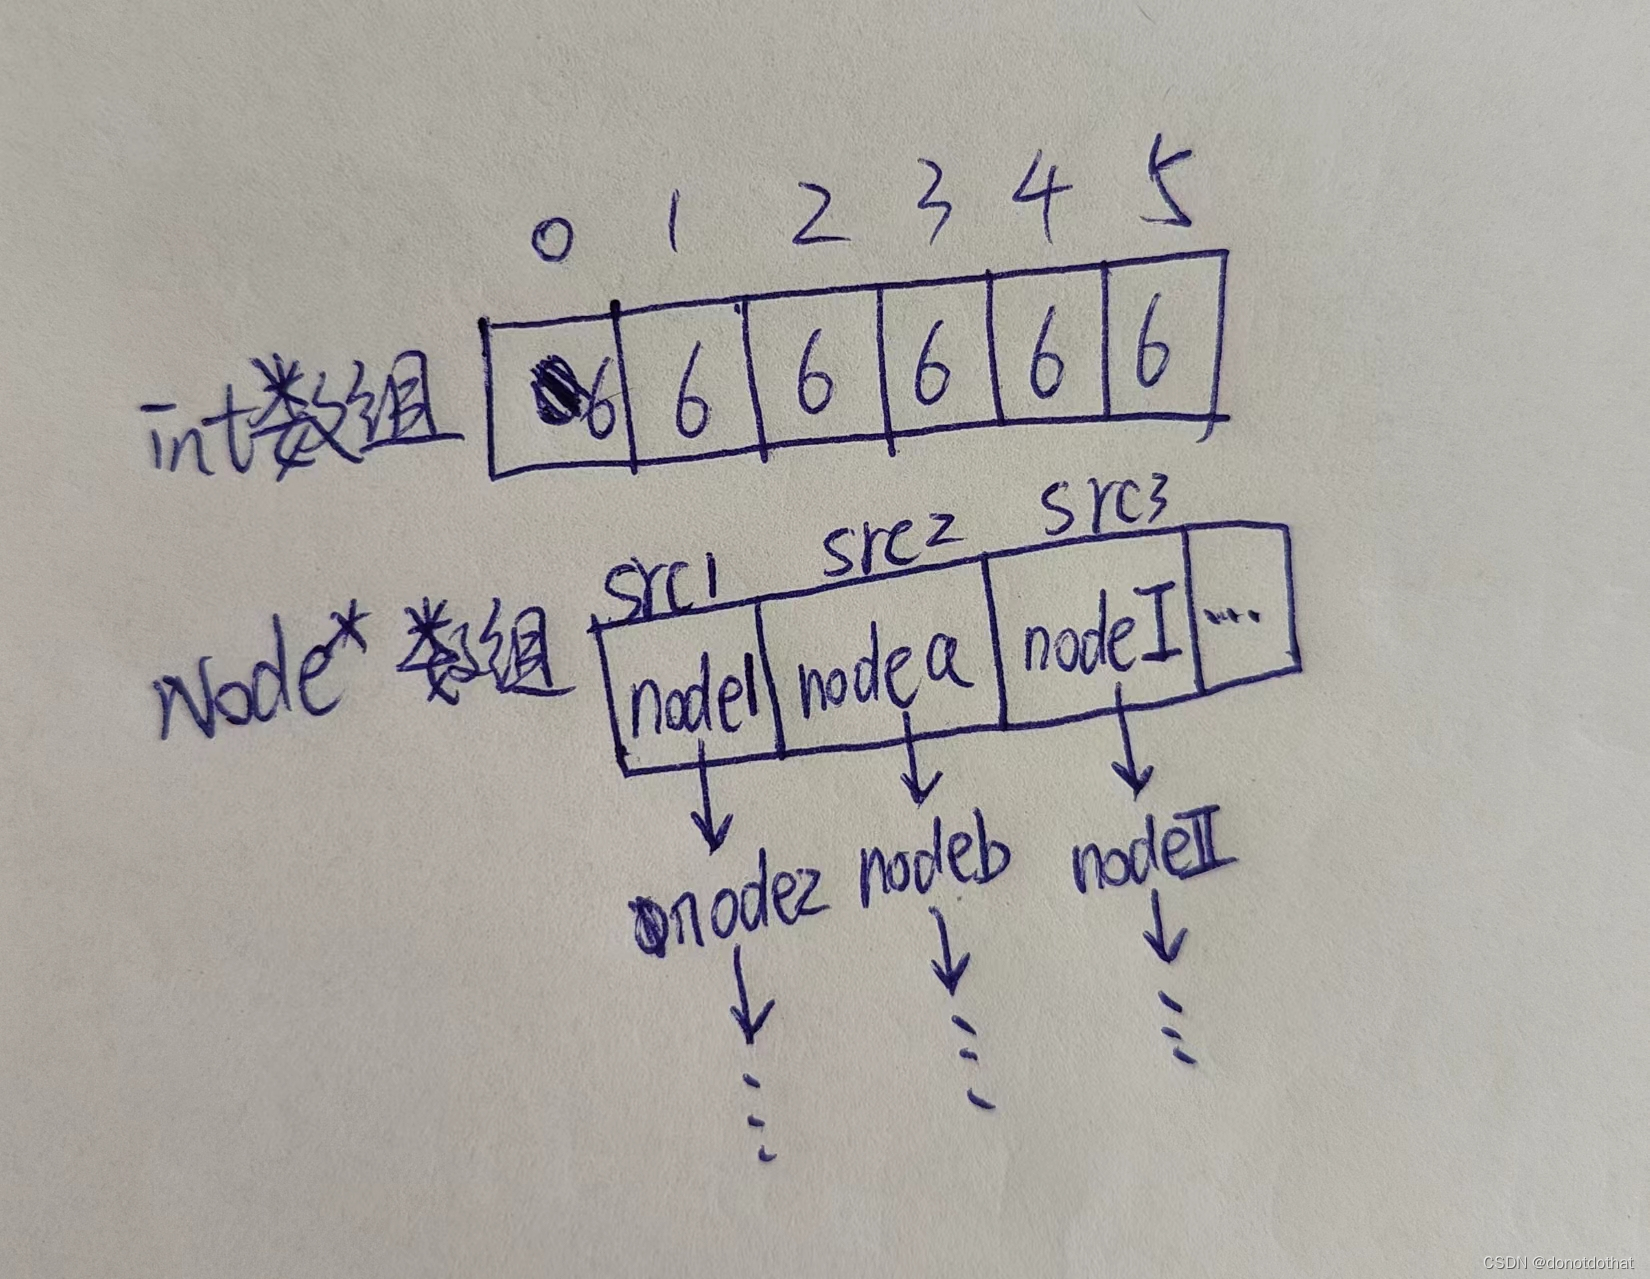 0 1 2 3 4 5
int数组 6 6 6 6 6 6
src1 src2 src3
Node* 数组 node1 nodea nodeI ...
node2 nodeb nodeII
CSDN @donotdothat